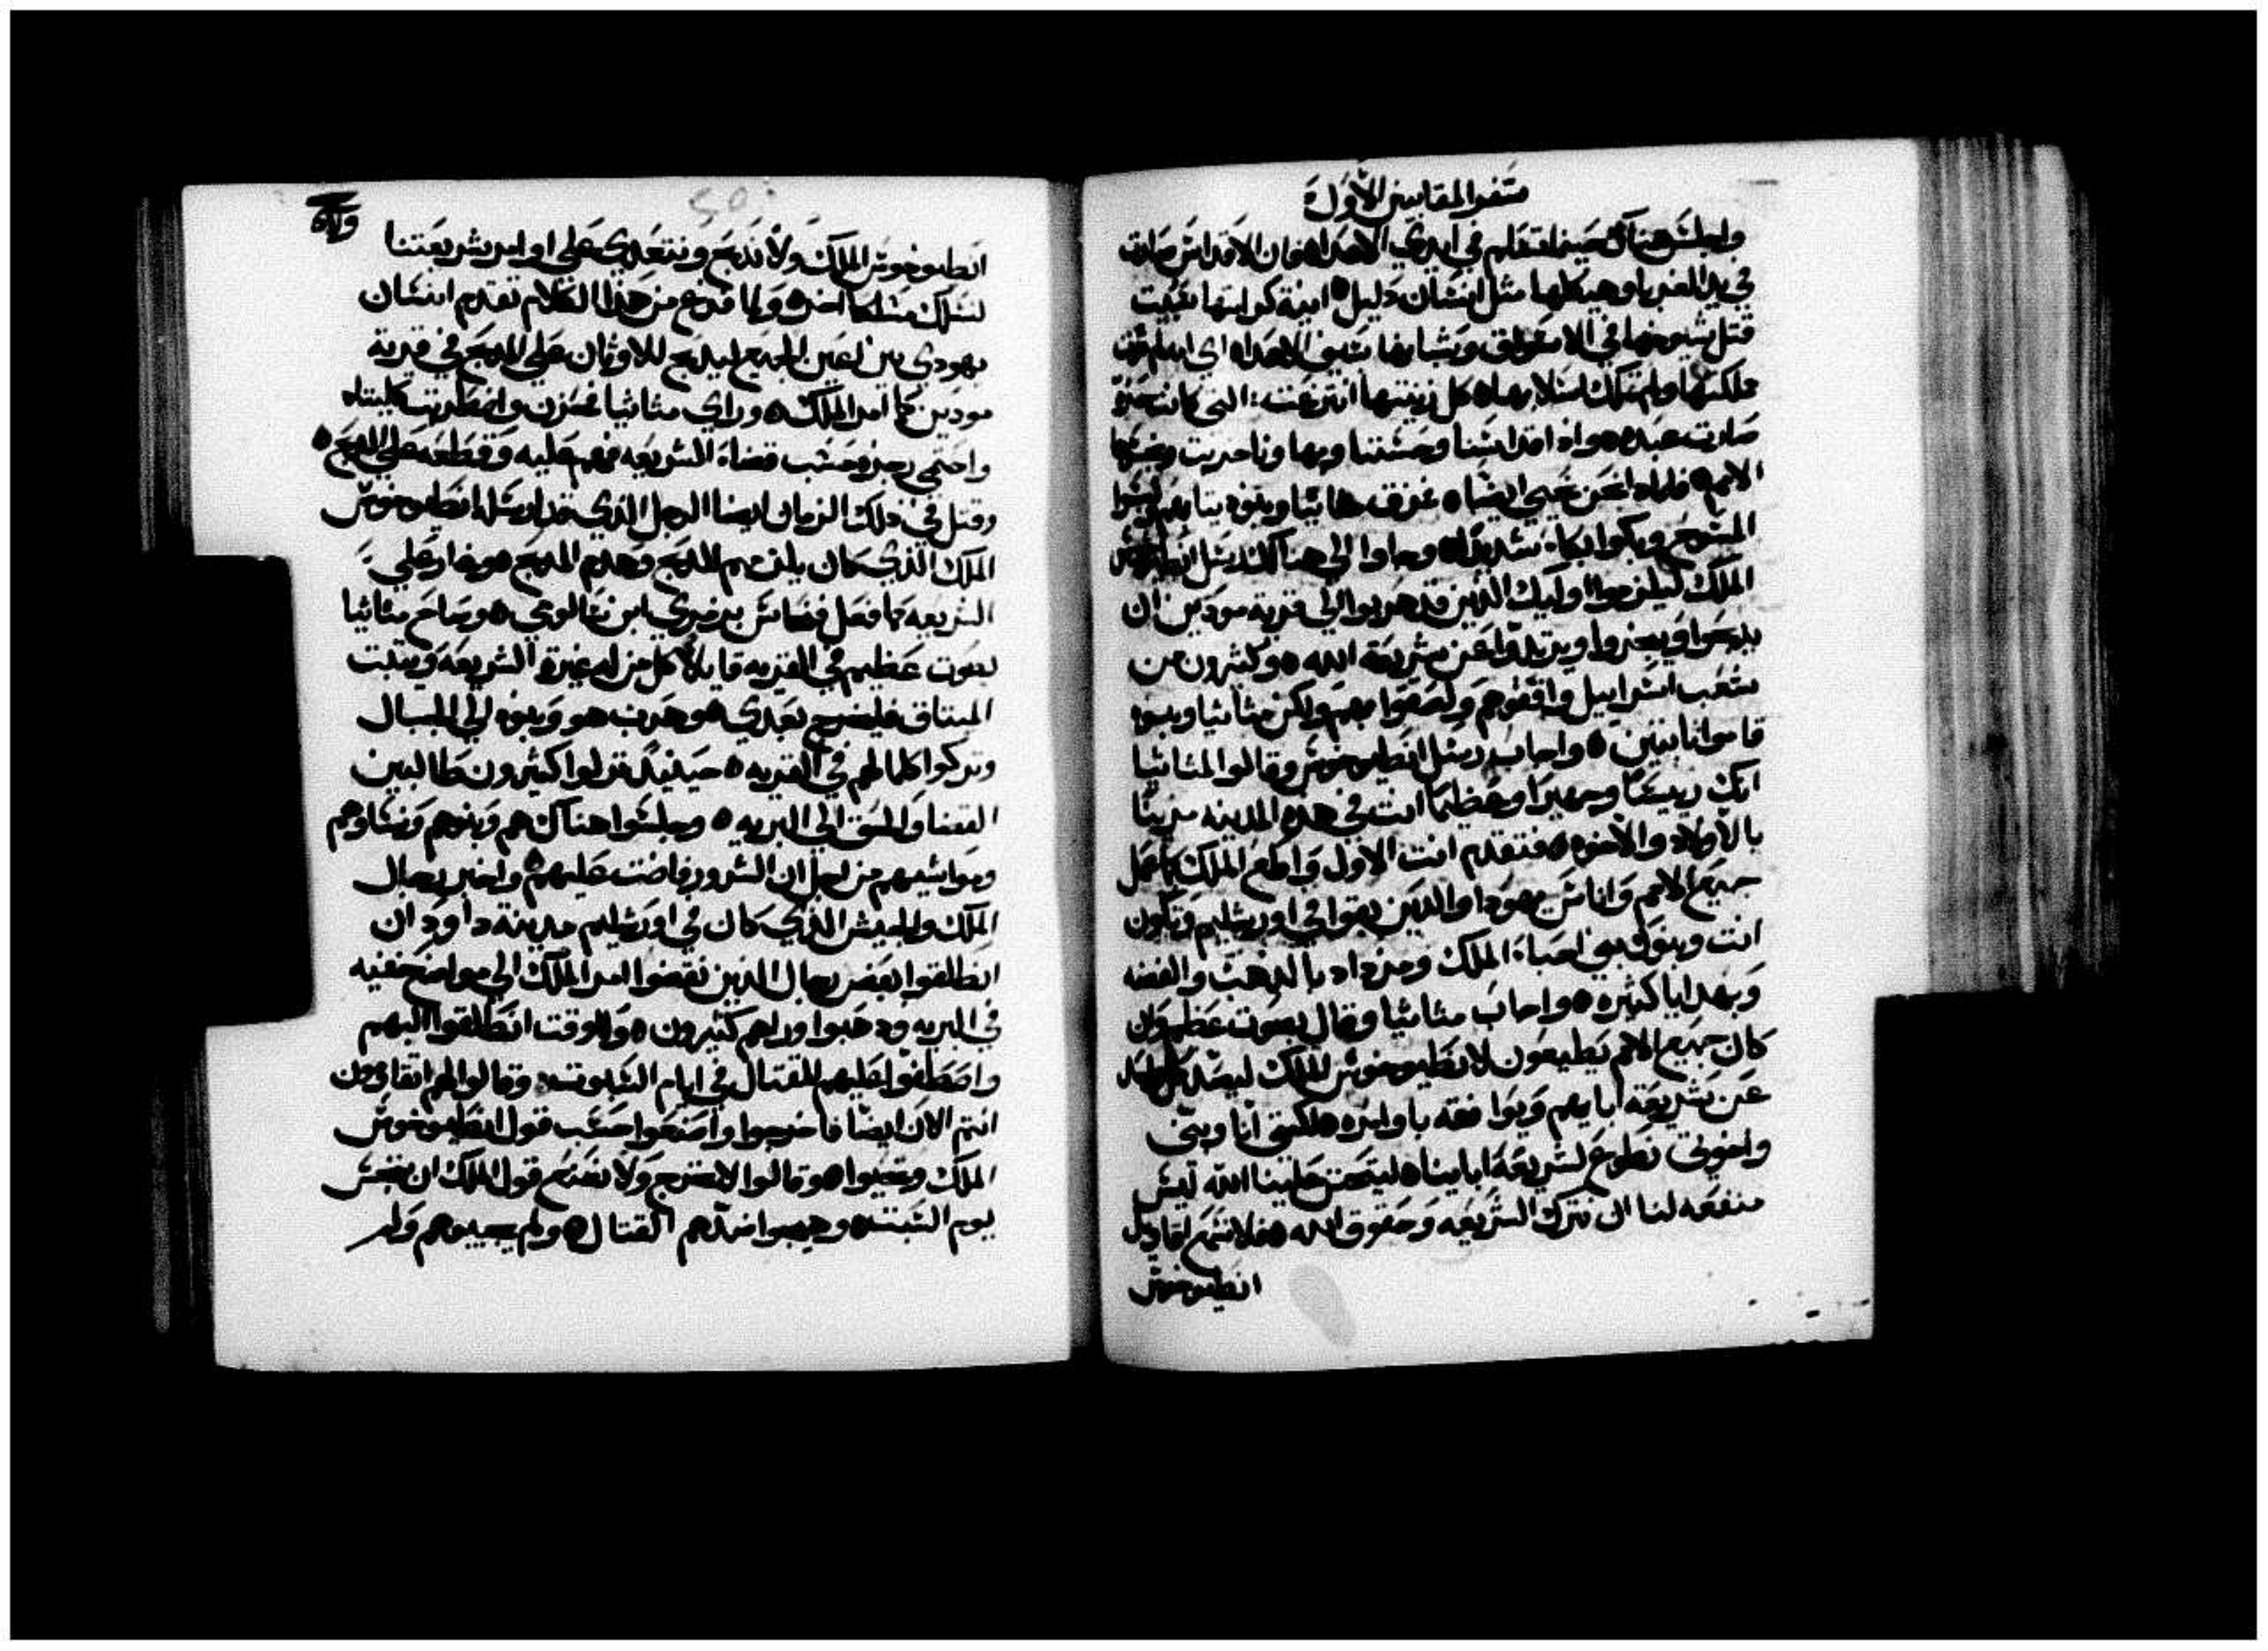 سفر المقابيين الأول
واجلس هناك حينما تسلم في ايدي الاعداه فان الاقداس صارت
في يد الغربا وهيكلها مثل انسان دليل ه انية كرامتها سبيت
قتل شيوخها في الاسواق وشبابها بسيف الاعداه اي
مملكتها ولم تملك اسلابها ه كل زينتها انتزعت: التي كانت حرة
صارت عبده ه واذ اقداسنا وحسننا وبها ونا خربت ونجسها
الامم ه فلماذا نحن نحيي ايضا ه فمزق ماثاثيا وبنوه ثيابهم ولبسوا
المسوح وبكوا بكاء شديدا ه وجاوا الي هناك رسل انطيوخوس
الملك ليلزموا اوليك الذين قد هربوا الي قرية مودين ان
يذبحوا ويبخروا ويرتدوا عن شريعة الله ه وكثيرون من
شعب اسراييل وافقوهم ولصقوا بهم ولكن مثاثيا وبنوه
قاموا ثابتين ه واجاب رسل انطيوخوس وقالوا لمثاثيا
انك رييسا وجهيرا وعظيما انت في هذه المدينه مزينا
بالاولاد والاخوه ه فتقدم انت الاول واطع الملك كما عمل
جميع الامم واناس يهودا والذين بقوا في اورشليم وتكون
انت وبنوك بين احباء الملك ومزداد بالذهب والفضه
وبهدايا كثيره ه واجاب مثاثيا وقال بصوت عظيم وان
كان جميع الامم يطيعون لانطيوخوس الملك ليبتعد كل واحد
عن شريعة ابايهم ويوافقه باوامره ه لكني انا وبني
واخوتي نطوع لشريعة ابايناه ليتحنن علينا الله ليس
منفعه لنا ان نترك الشريعه وحقوق الله ه فلا نسمع اقاويل
انطيوخوس
انطيوخوس الملك ولا نذبح ونتعدي علي اوامر شريعتنا
لنسلك مسلكا اخره ولما فرغ من هذا الكلام تقدم انسان
يهودي بين اعين الجميع ليذبح للاوثان علي المذبح في قرية
مودين كما امر الملك ه وراي مثاثيا فحزن وانضطربت كليتاه
واحتمي رجزه وحسب قضاء الشريعه فهجم عليه وقطعه علي المذبح ه
وقتل في ذلك الزمان ايضا الرجل الذي قد ارسله انطيوخوس
الملك الذي كان يلزمهم للذبح وهدم المذبح ه وغار علي
الشريعه كما فعل فنحاس بزمري ابن سالومي ه وصاح مثاثيا
بصوت عظيم في القريه قايلا كل من له غيرة الشريعه ويثبت
الميثاق فليخرج بعدي ه وهرب هو وبنوه الي الجبال
وتركوا كلما لهم في القريه ه حينيذ نزلوا كثيرون طالبين
القضا والحق الي البريه ه وجلسوا هناك هم وبنوهم ونساوهم
ومواشيهم من اجل ان الشرور فاضت عليهم ه واخبر رجال
الملك والجيش الذي كان في اورشليم مدينة داوود ان
انطلقوا بعض رجال الذين نقضوا امر الملك الي مواضع خفيه
في البريه وذهبوا وراهم كثيرون ه وللوقت انطلقوا اليهم
واصطفوا عليهم للقتال في ايام السبوت ه وقالوا لهم اتقاومون
انتم الان ايضا فاخرجوا واصنعوا حسب قول انطيوخوس
الملك وتحيوا ه وقالوا لا نخرج ولا نصنع قول الملك ان ننجس
يوم السبت ه وهيجوا ضدهم القتال ه ولم يجيبوهم ولم